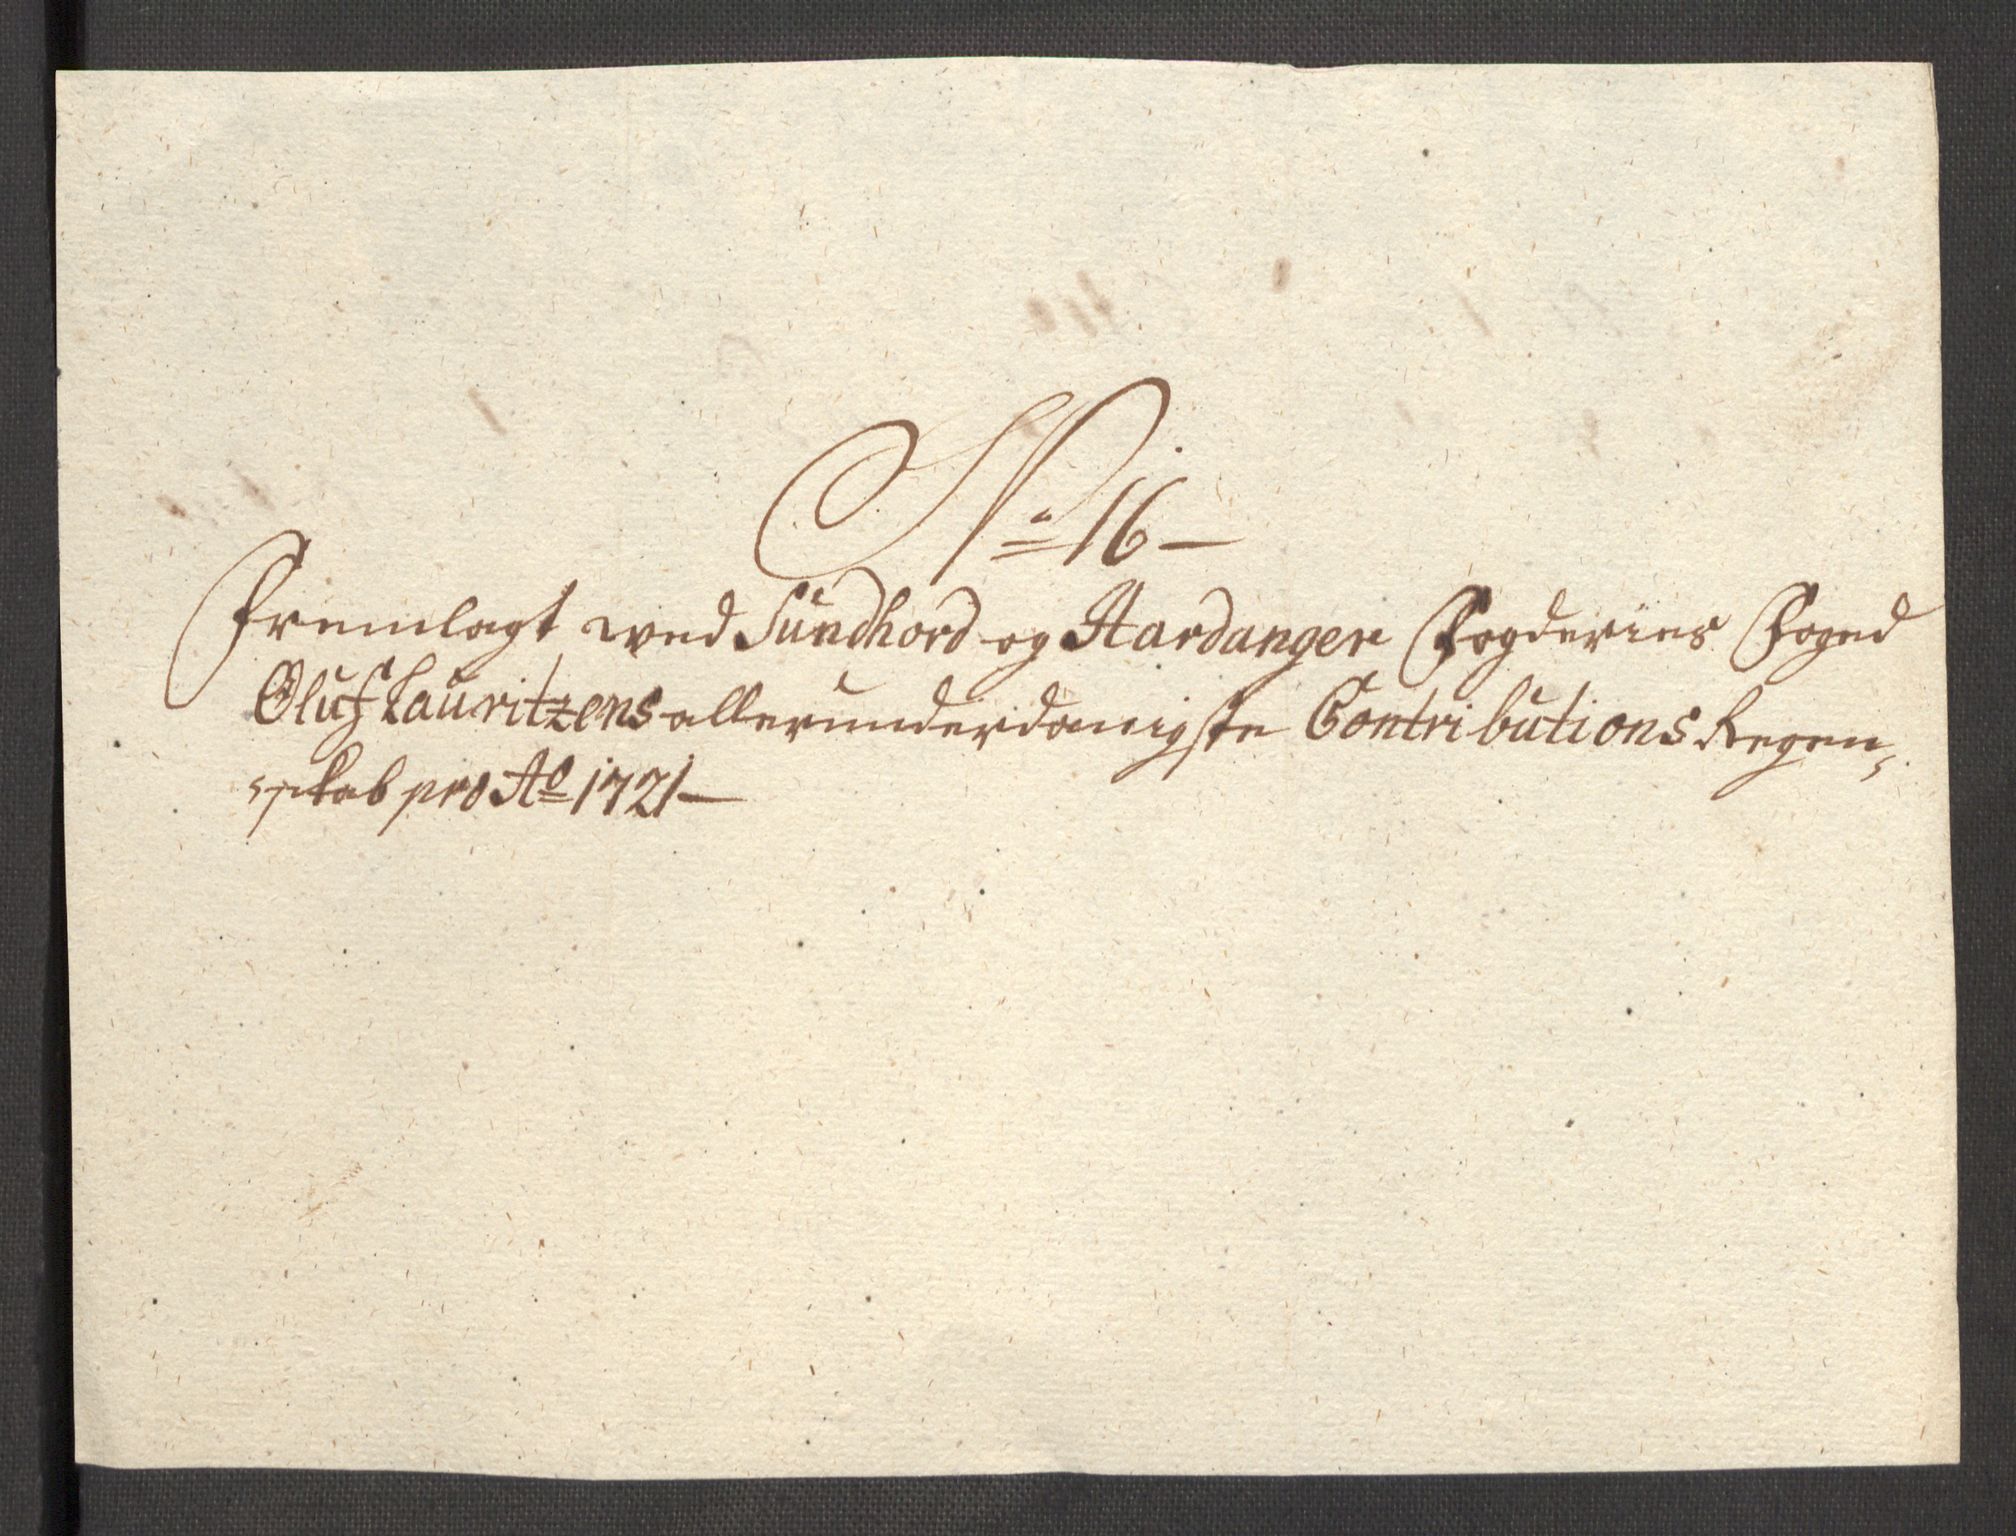 No 16 —
Fremlagt wed Sundhord og Hardanger Fogderies Foged
Oluf Lauritzens allerunderdanigste Contributions Regen-
skab pro Ao 1721 —